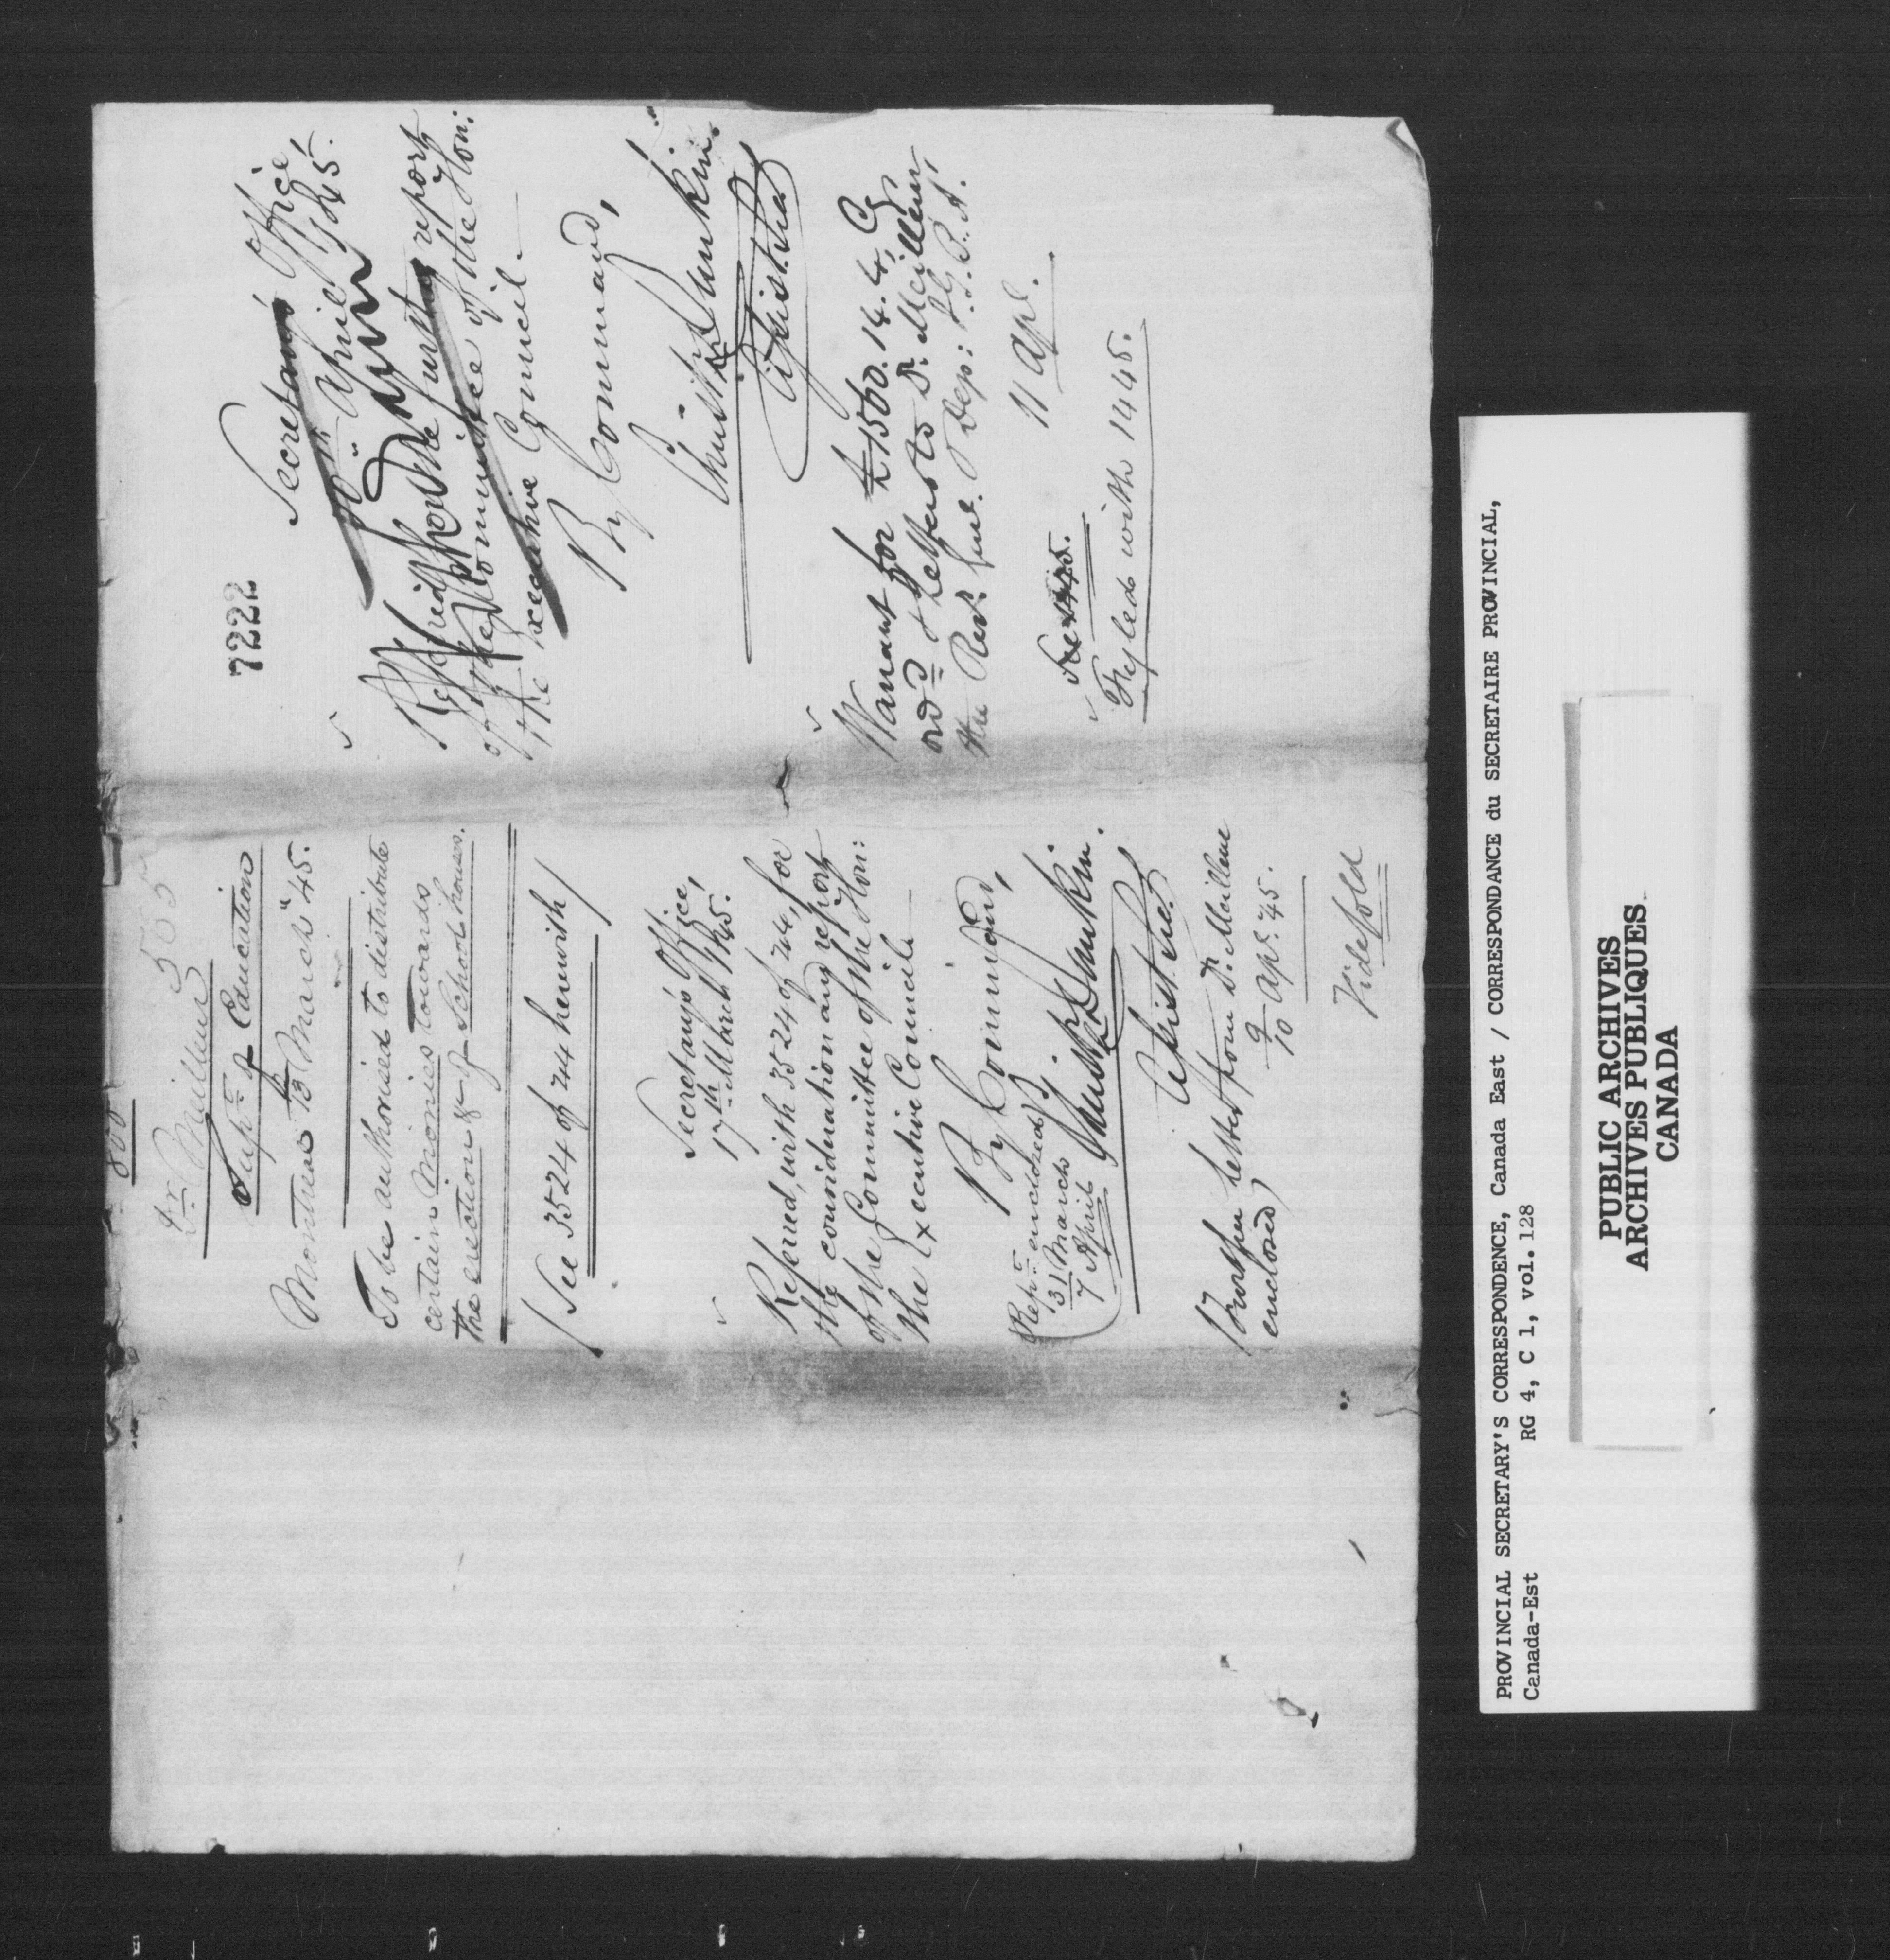 800
505
Dr. Meilleur
Supt. of Education
Montreal 13 March "45.
To be authorised to distribute
certain Monies towards
the erection &c of School houses.
(See 3524 of 44 herewith)
Secretary's Office,
17th March 1845.
Referred, with 3524 of 44, for
the consideration and report
of the Committee of the Hon:
the Executive Council
By Command,
Christr. Dunkin.
Assist. Sec.
(Rept. enclosed
31 March
7 April
(Further letter from Dr. Meilleur
enclosed) 9/10 Apl. 45.
Vide fold
7222
Secretary's Office,
10th April 1845.
Referred for the further report
of the Committee of the Hon:
the Executive Council.
By Command,
Christr. Dunkin.
Assist. Sec.
Warrant for £1560.14.4 Cy
ord'd & Letters to Dr. Meilleur,
the Recr. Genl. & Dep: I.G.P.A.
11 Apl.
See 1445.
Fyled with 1445.
PROVINCIAL SECRETARY'S CORRESPONDENCE, Canada East / CORRESPONDANCE du SECRETAIRE PROVINCIAL,
Canada-Est RG 4, C 1, vol. 128
PUBLIC ARCHIVES
ARCHIVES PUBLIQUES
CANADA